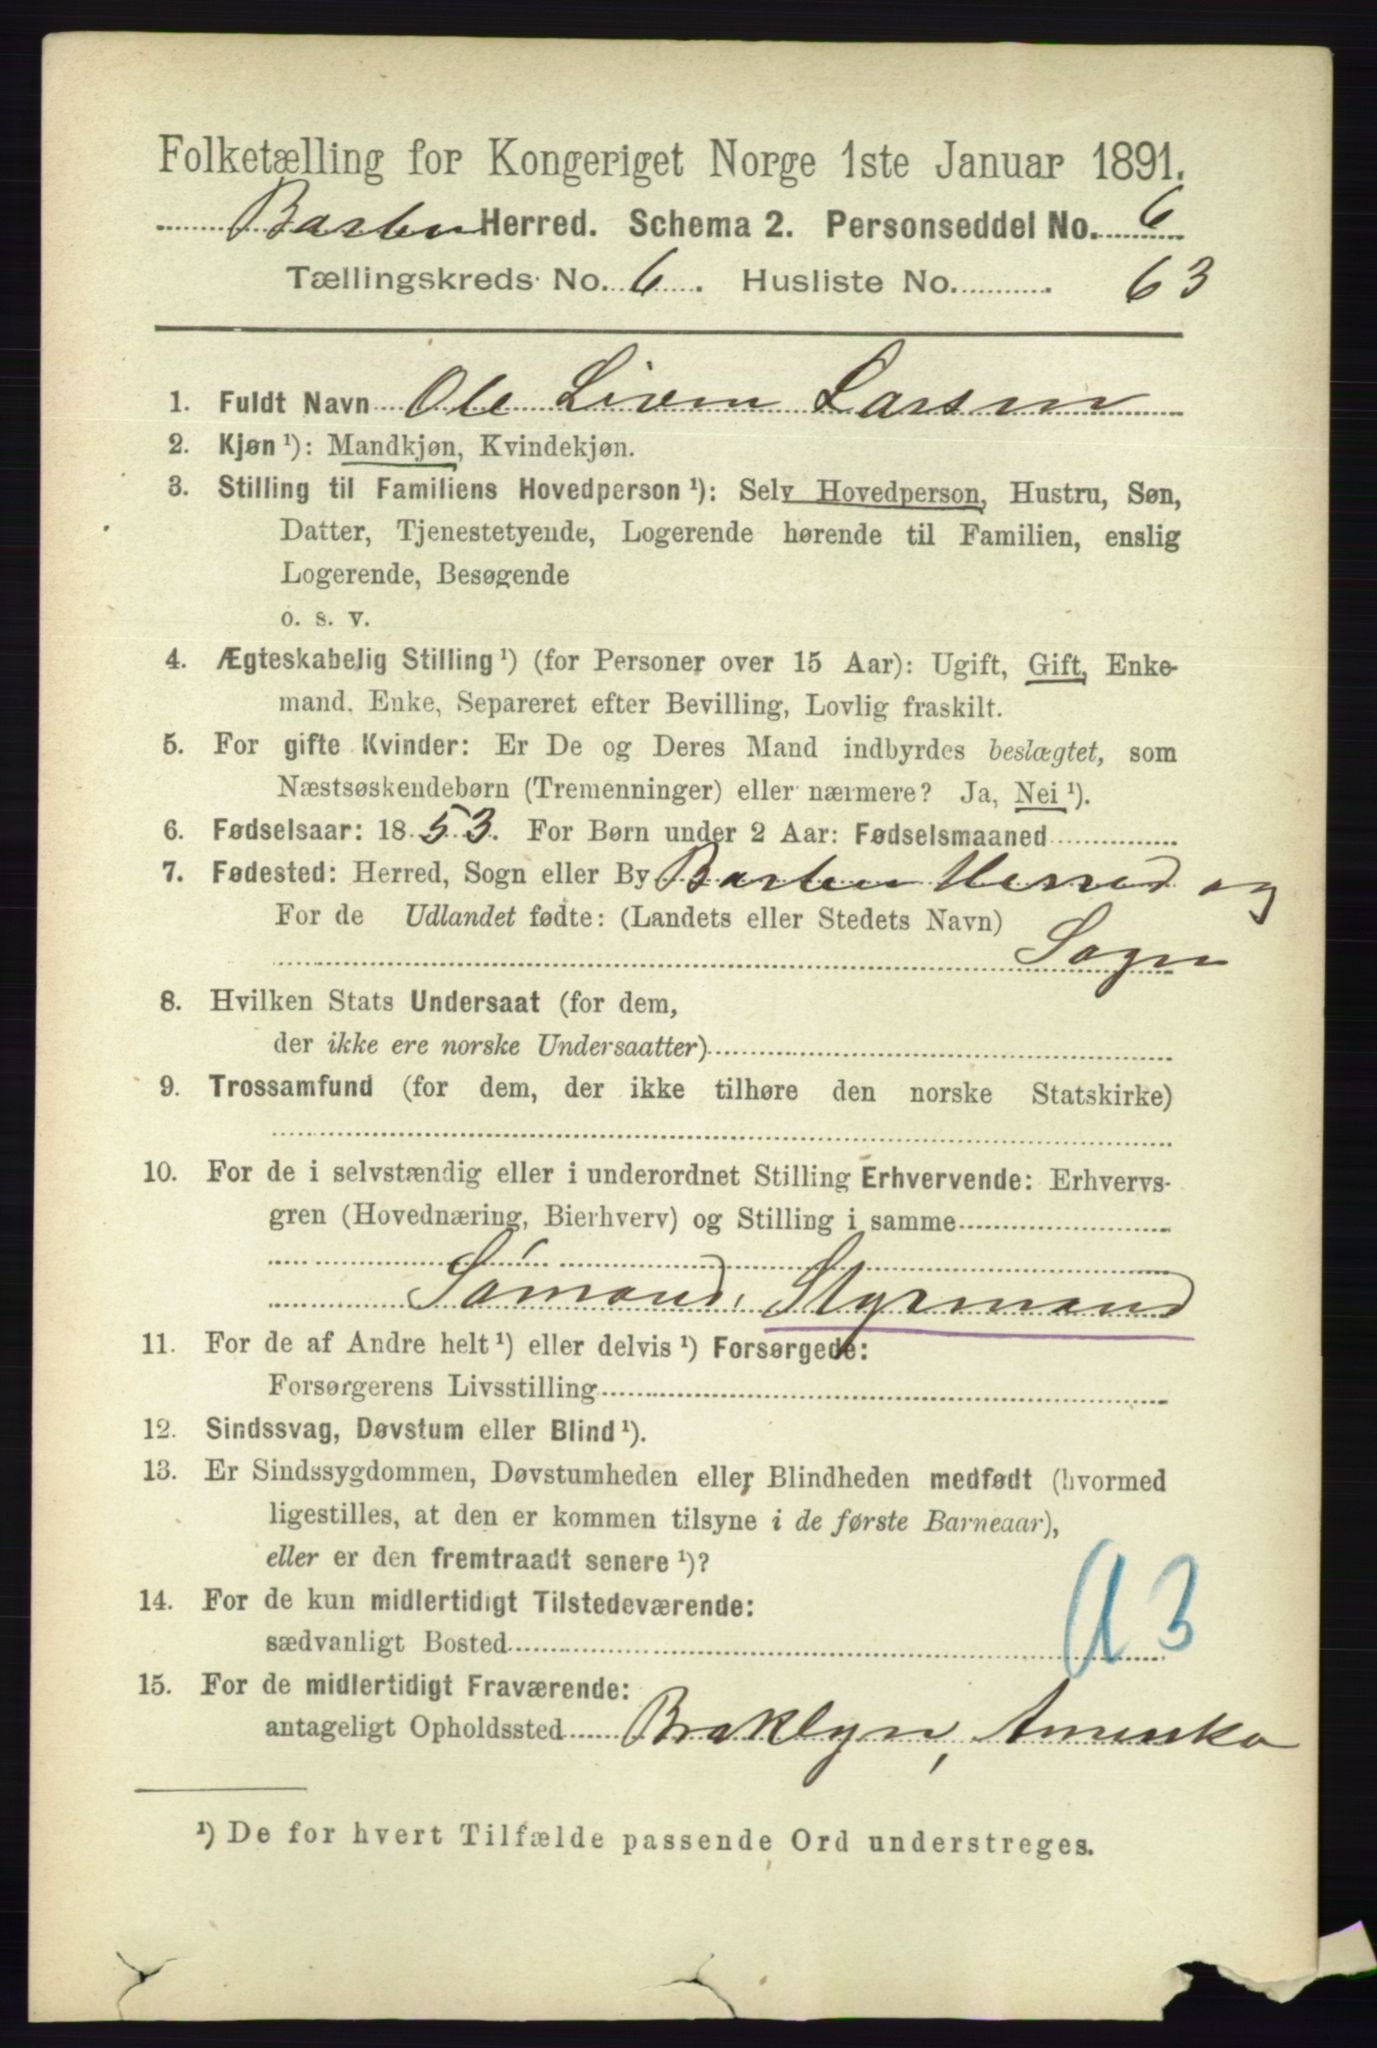 Folketælling for Kongeriget Norge 1ste Januar 1891.
Barbu Herred. Schema 2. Personseddel No. 6
Tællingskreds No. 6. Husliste No. 63
1. Fuldt Navn Ole Larsen
2. Kjøn ¹): Mandkjøn, Kvindekjøn.
3. Stilling til Familiens Hovedperson ¹): Selv Hovedperson, Hustru, Søn,
Datter, Tjenestetyende, Logerende hørende til Familien, enslig
Logerende, Besøgende
o. s. v.
4. Ægteskabelig Stilling ¹) (for Personer over 15 Aar): Ugift, Gift, Enke-
mand, Enke, Separeret efter Bevilling, Lovlig fraskilt.
5. For gifte Kvinder: Er De og Deres Mand indbyrdes beslægtet, som
Næstsøskendebørn (Tremenninger) eller nærmere? Ja, Nei ¹).
6. Fødselsaar: 1853. For Børn under 2 Aar: Fødselsmaaned
7. Fødested: Herred, Sogn eller By Barbu Herred og
For de Udlandet fødte: (Landets eller Stedets Navn)
Sogn
8. Hvilken Stats Undersaat (for dem,
der ikke ere norske Undersaatter)
9. Trossamfund (for dem, der ikke tilhøre den norske Statskirke)
10. For de i selvstændig eller i underordnet Stilling Erhvervende: Erhvervs-
gren (Hovednæring, Bierhverv) og Stilling i samme
Sømand, Styrmand
11. For de af Andre helt ¹) eller delvis ¹) Forsørgede:
Forsørgerens Livsstilling
12. Sindssvag, Døvstum eller Blind ¹).
13. Er Sindssygdommen, Døvstumheden eller Blindheden medfødt (hvormed
ligestilles, at den er kommen tilsyne i de første Barneaar),
eller er den fremtraadt senere ¹)?
14. For de kun midlertidigt Tilstedeværende:
sædvanligt Bosted
15. For de midlertidigt Fraværende:
antageligt Opholdssted Broklyn, Amerika
¹) De for hvert Tilfælde passende Ord understreges.